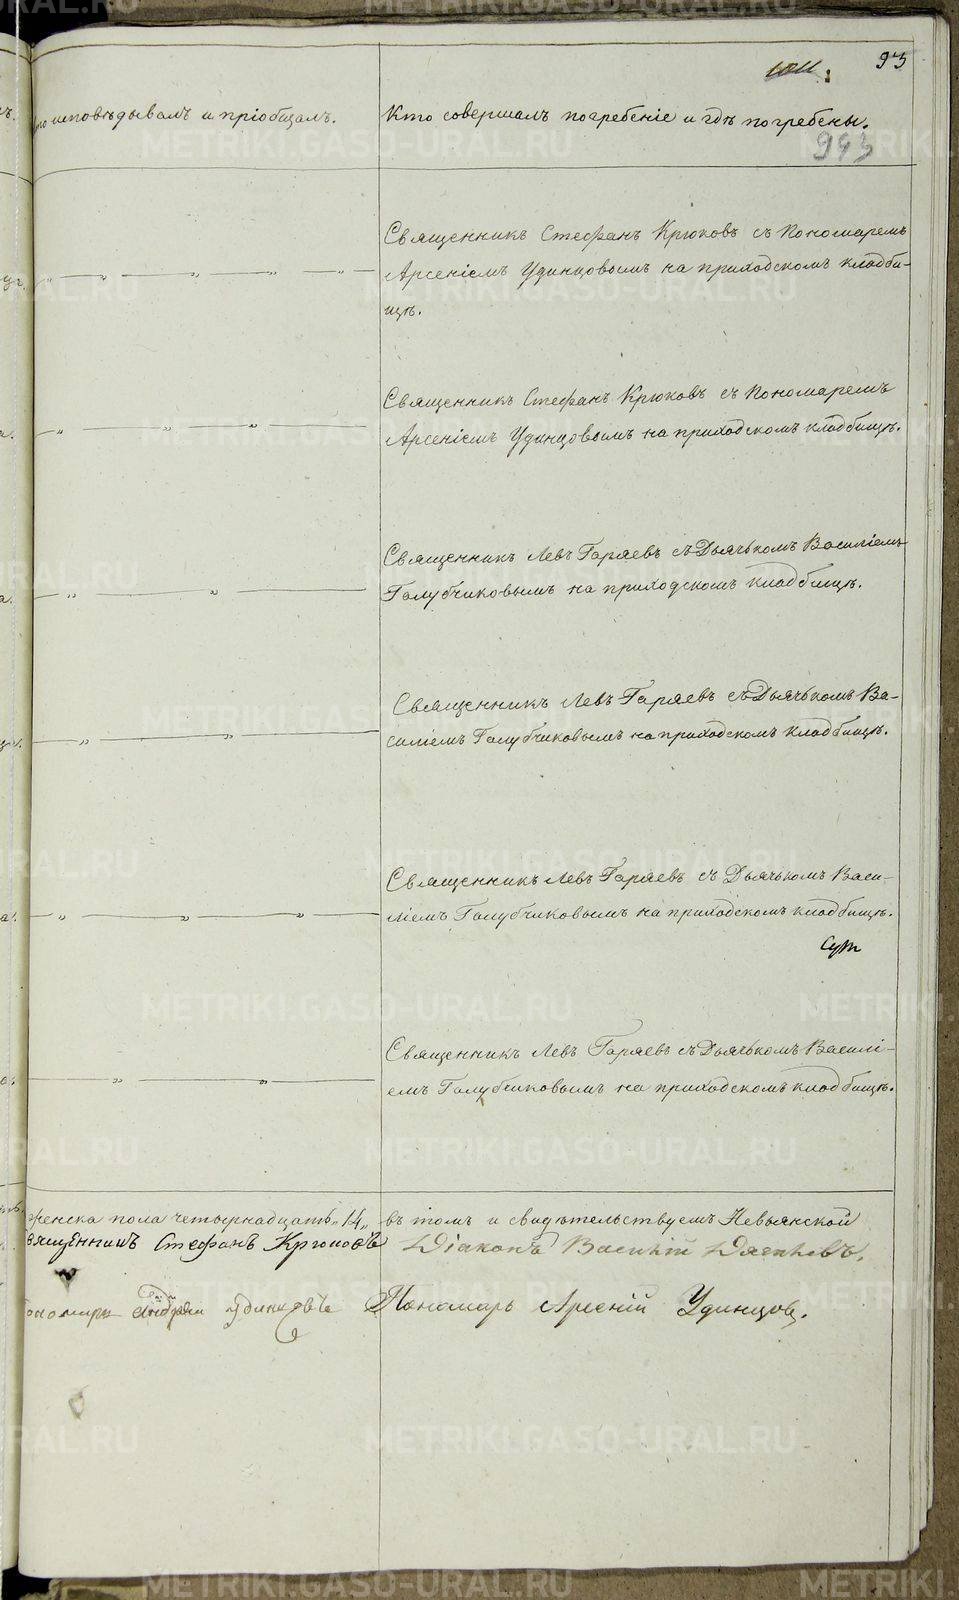 93
943
исповѣдывалъ и пріобщалъ.
Кто совершалъ погребеніе и гдѣ погребены.
Священникъ Стефанъ Крюковъ съ Пономаремъ
Арсеніемъ Удинцовымъ на приходскомъ кладби-
щѣ.
Священникъ Стефанъ Крюковъ съ Пономаремъ
Арсеніемъ Удинцовымъ на приходскомъ кладбищѣ.
Священникъ Левъ Гаряевъ съ Дьячькомъ Василіемъ
Голубчиковымъ на приходскомъ кладбищѣ.
Священникъ Левъ Гаряевъ съ Дьячькомъ Ва-
силіемъ Голубчиковымъ на приходскомъ кладбищѣ.
Священникъ Левъ Гаряевъ съ Дьячькомъ Васи-
ліемъ Голубчиковымъ на приходскомъ кладбищѣ.
Священникъ Левъ Гаряевъ съ Дьячькомъ Васили-
емъ Голубчиковымъ на приходскомъ кладбищѣ.
женска пола четырнадцать „14„ въ томъ и свидѣтельствуемъ Невьянской
Священникъ Стефанъ Крюковъ Діаконъ Василій
Пономарь Удинцовъ Пономарь Арсеній Удинцов.
METRIKI.GASO-URAL.RU